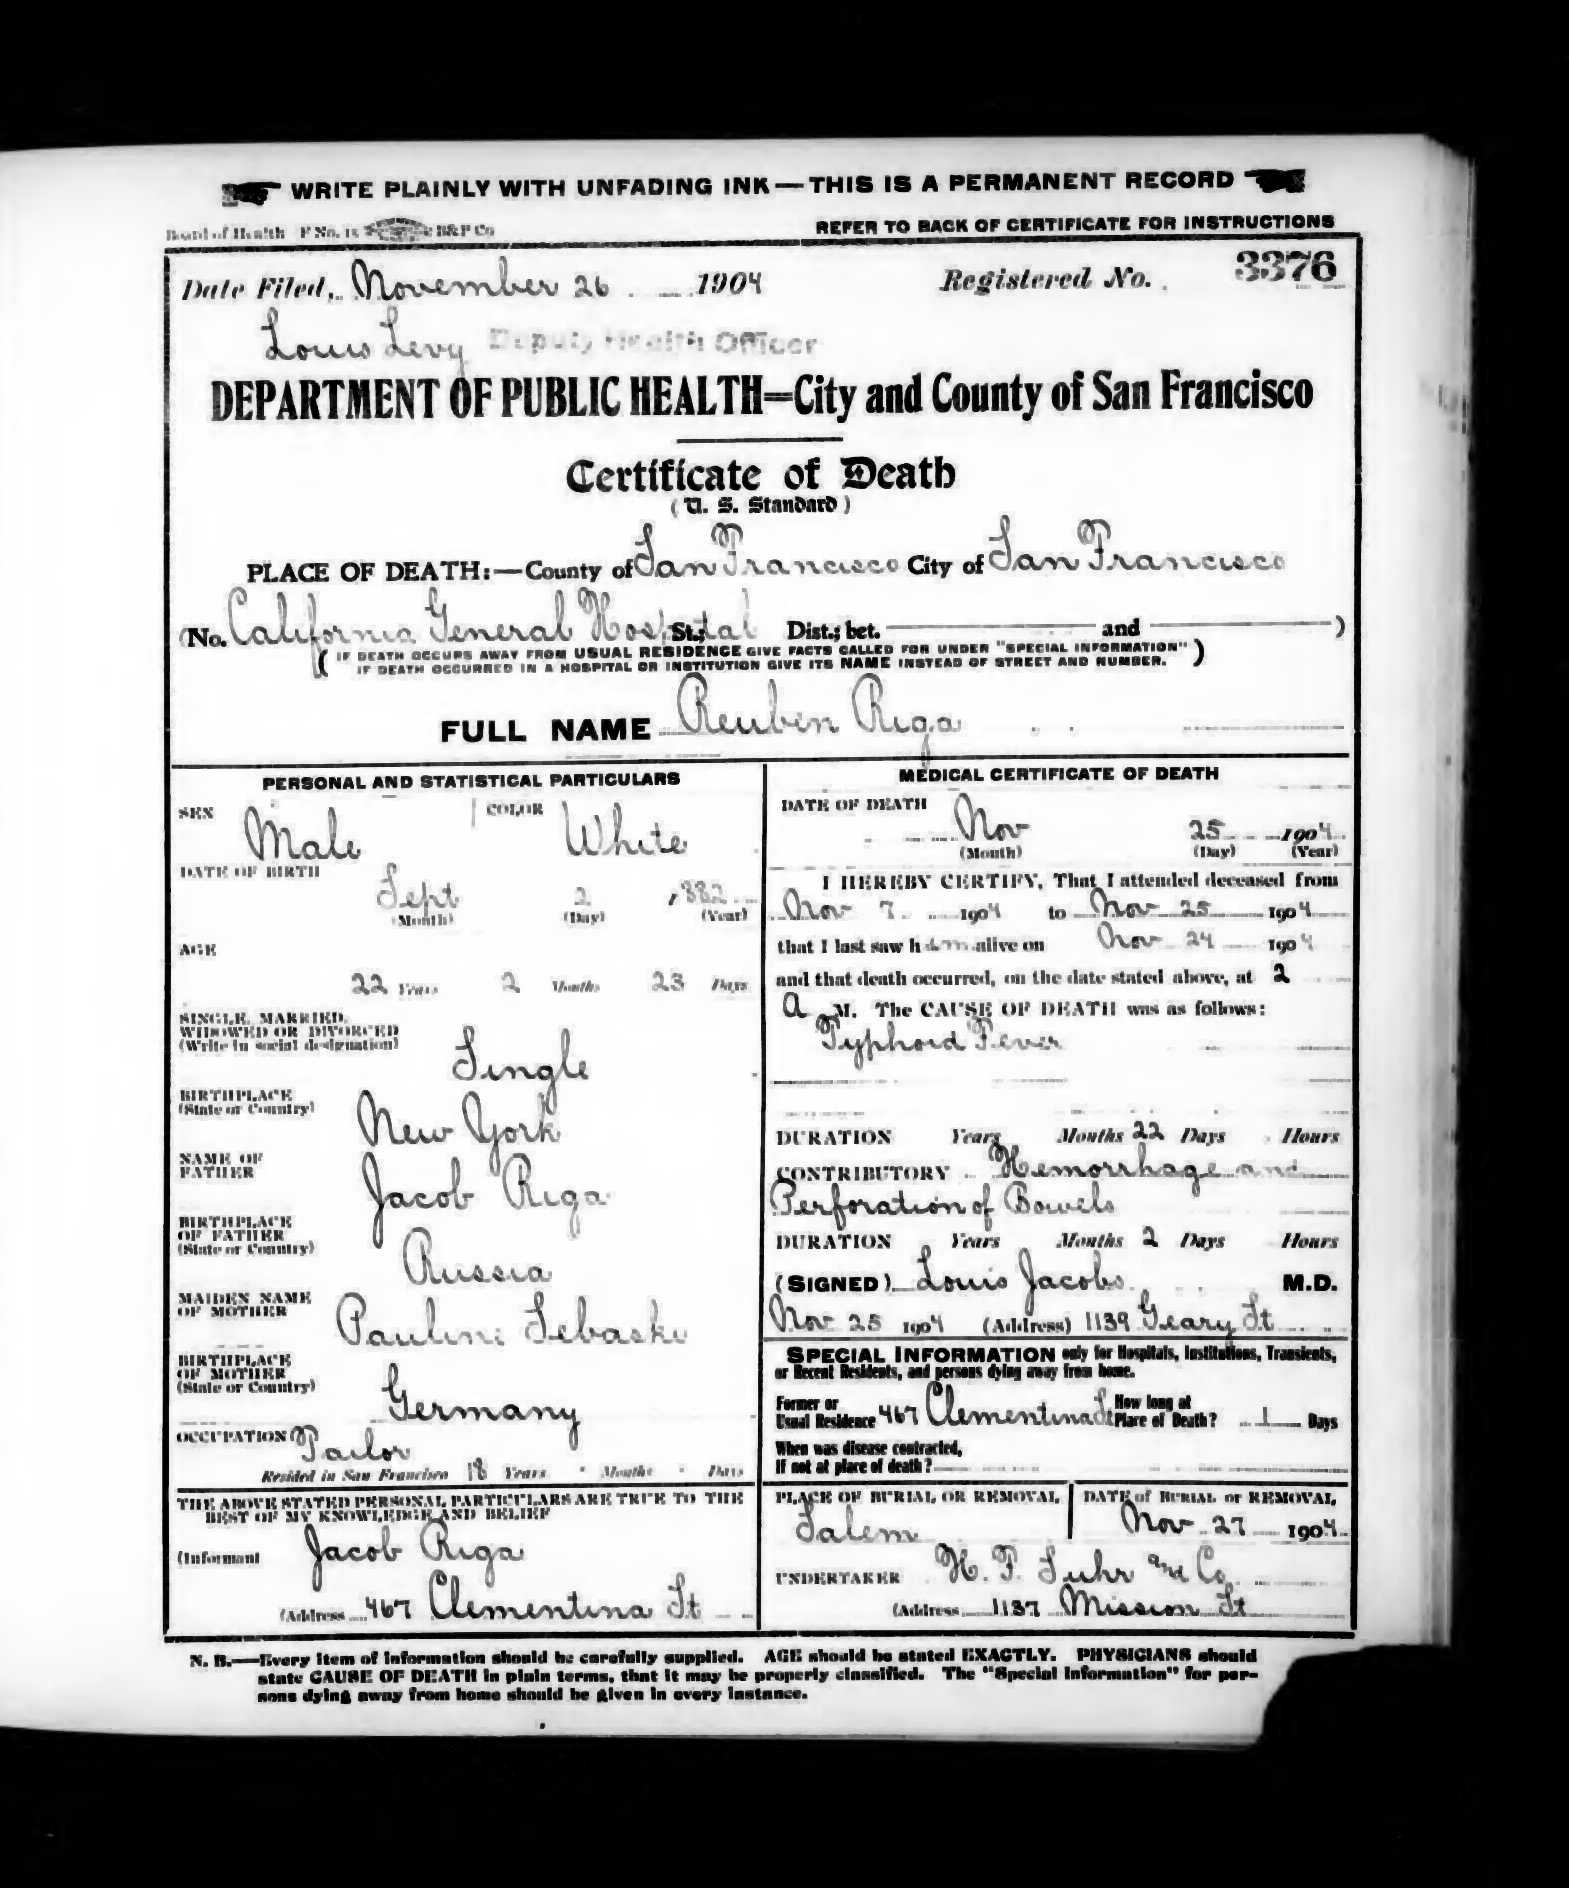 WRITE PLAINLY WITH UNFADING INK—THIS IS A PERMANENT RECORD
Board of Health F No. 15 B&P Co
REFER TO BACK OF CERTIFICATE FOR INSTRUCTIONS
Date Filed, November 26 1904 Registered No. 3376
Louis Levy Deputy Health Officer
DEPARTMENT OF PUBLIC HEALTH=City and County of San Francisco
Certificate of Death
(U. S. Standard)
PLACE OF DEATH:—County of San Francisco City of San Francisco
(No. California General Hospital St.; Dist.; bet. and )
( IF DEATH OCCURS AWAY FROM USUAL RESIDENCE GIVE FACTS CALLED FOR UNDER "SPECIAL INFORMATION" )
IF DEATH OCCURRED IN A HOSPITAL OR INSTITUTION GIVE ITS NAME INSTEAD OF STREET AND NUMBER.
FULL NAME Reuben Riga
PERSONAL AND STATISTICAL PARTICULARS
SEX Male COLOR White
DATE OF BIRTH
Sept 2 1882
(Month) (Day) (Year)
AGE
22 Years 2 Months 23 Days
SINGLE, MARRIED,
WIDOWED OR DIVORCED
(Write in social designation)
Single
BIRTHPLACE
(State or Country)
New York
NAME OF
FATHER
Jacob Riga
BIRTHPLACE
OF FATHER
(State or Country)
Russia
MAIDEN NAME
OF MOTHER
Pauline Sebaski
BIRTHPLACE
OF MOTHER
(State or Country)
Germany
OCCUPATION Tailor
Resided in San Francisco 18 Years Months Days
THE ABOVE STATED PERSONAL PARTICULARS ARE TRUE TO THE
BEST OF MY KNOWLEDGE AND BELIEF
(Informant Jacob Riga
(Address 467 Clementina St
MEDICAL CERTIFICATE OF DEATH
DATE OF DEATH
Nov 25 1904
(Month) (Day) (Year)
I HEREBY CERTIFY, That I attended deceased from
Nov 7 1904 to Nov 25 1904
that I last saw him alive on Nov 24 1904
and that death occurred, on the date stated above, at 2
A M. The CAUSE OF DEATH was as follows:
Typhoid Fever
DURATION Years Months 22 Days Hours
CONTRIBUTORY Hemorrhage and
Perforation of Bowels
DURATION Years Months 2 Days Hours
(SIGNED) Louis Jacobs M.D.
Nov 25 1904 (Address) 1139 Geary St
SPECIAL INFORMATION only for Hospitals, Institutions, Transients,
or Recent Residents, and persons dying away from home.
Former or
Usual Residence 467 Clementina St
How long at
Place of Death? 1 Days
When was disease contracted,
If not at place of death?
PLACE OF BURIAL OR REMOVAL
Salem
DATE of BURIAL or REMOVAL
Nov 27 1904
UNDERTAKER H. F. Suhr and Co
(Address 1137 Mission St
N. B.—Every item of information should be carefully supplied. AGE should be stated EXACTLY. PHYSICIANS should
state CAUSE OF DEATH in plain terms, that it may be properly classified. The "Special Information" for per-
sons dying away from home should be given in every instance.